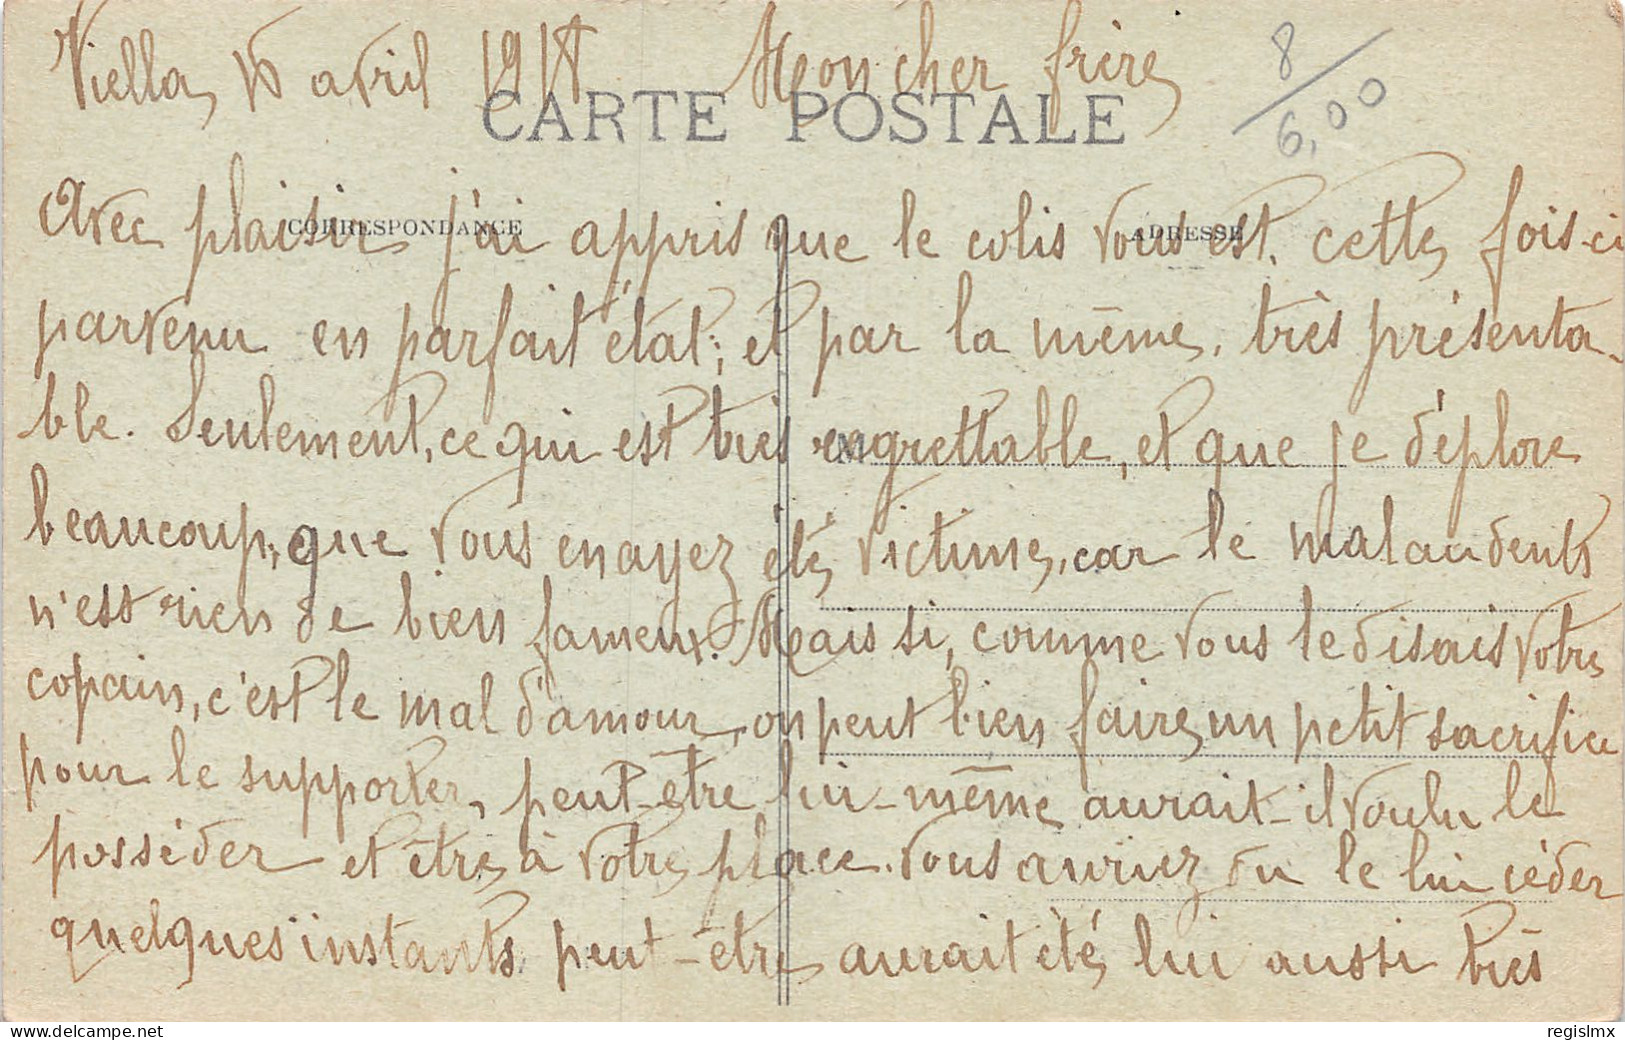 Viella, avril Mon cher frère
8
6,00
CARTE POSTALE
CORRESPONDANCE
ADRESSE
Avec plaisir j'ai appris que le colis vous est, cette fois-ci
parvenu en parfait état; et par la même, très présenta-
ble. Seulement, ce qui est très regrettable, et que je déplore
beaucoup, que vous en ayez été victime, car le mal au dents
n'est rien de bien fameux. Mais si, comme vous le disais votre
copain, c'est le mal d'amour, on peut bien faire un petit sacrifice
pour le supporter, peut-être lui-même aurait-il voulu le
posséder et être à votre place. Vous auriez du le lui céder
quelques instants, peut-être aurait été lui aussi très
regislmx